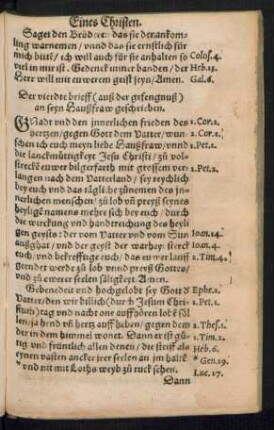 Eines Christen.
Saget den Brüdern: das sie der ankom-
ling warnemen / vnnd das sie ernstlich für
mich bitē / ich will auch für sie anhalten so Colos.4.
vil in mir ist. Gedenckt immer banden / der Heb.13.
Herr will mit euwerem geist seyn / Amen. Gal.6.
Der vierdte brieff (auß der gefengnuß)
an seyn Haußfraw geschrieben.
GNadt vnd den innerlichen frieden des 1.Cor.1.
hertzen / gegen Gott dem Vatter / wün- 2.Cor.1.
schen ich euch meyn liebe Haußfraw / vnnd 1.Pet.1.
die lanckmütigkeyt Jesu Christi / zů vol-
streckē euwer bilgerfarth mit grossem ver- 1.Pet.2.
langen nach dem Vatterland / sey reychlich
bey euch vnd das tägliche zůnemen des in-
nerlichen menschen / zů lob vñ preyß seynes
heyligē namens mehre sich bey euch / durch
die wirckung vnd handtreichung des heyli-
gen geysts: der vom Vatter vnd vom Sun Ioan.14.
außghat / vnd der geyst der warheyt sterck Ioan.4.
euch / vnd bekrefftige euch / das euwer lauff 1.Tim.4.
geendet werde zů lob vnnd preyß Gottes /
vnd zů ewerer seelen säligkeyt. Amen.
Gebenedeit vnd hochgelobt sey Gott d' Ephe.1.
Vatter / den wir billich (durch Jesum Chri- 1.Pet.1.
stum) tag vnd nacht one auffhören lobē söl-
len / ja hend vñ hertz auff heben / gegen dem 1.Thes.1.
der in dem himmel wonet. Dann er ist gü- 1.Tim.2.
tig vnd früntlich allen denen / die steiff als Heb.6.
eynen vasten ancker irer seelen an jm haltē * Gen.19.
vnd nit mit Loths weyb zů ruck sehen. Luc.17.
Dann